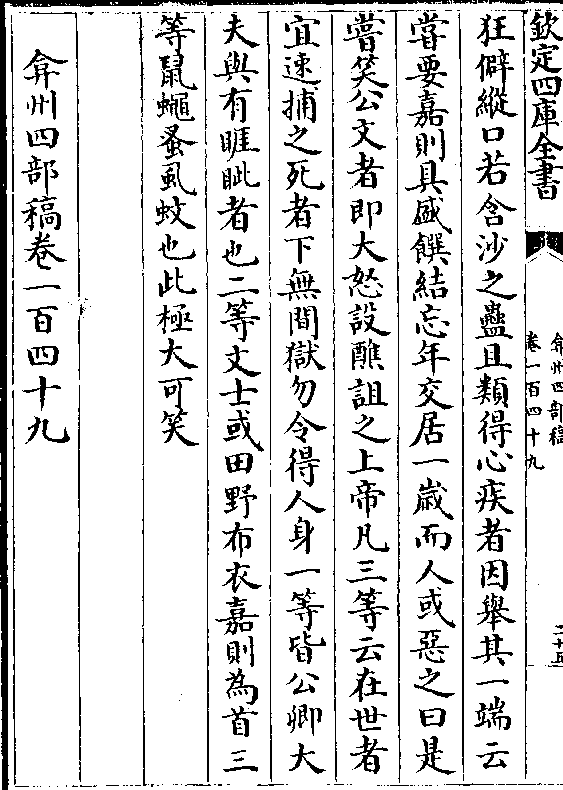 欽定四庫全書
弇州四部稿
卷一百四十九
二十五
狂僻縱口若含沙之蠱且類得心疾者因舉其一端云
嘗要嘉則具盛饌結忘年交居一嵗而人或惡之曰是
嘗笑公文者即大怒設醮詛之上帝凡三等云在世者
宜速捕之死者下無間獄勿令得人身一等皆公卿大
夫與有睚眦者也二等文士或田野布衣嘉則為首三
等鼠蠅蚤虱蚊也此極大可笑
弇州四部稿卷一百四十九